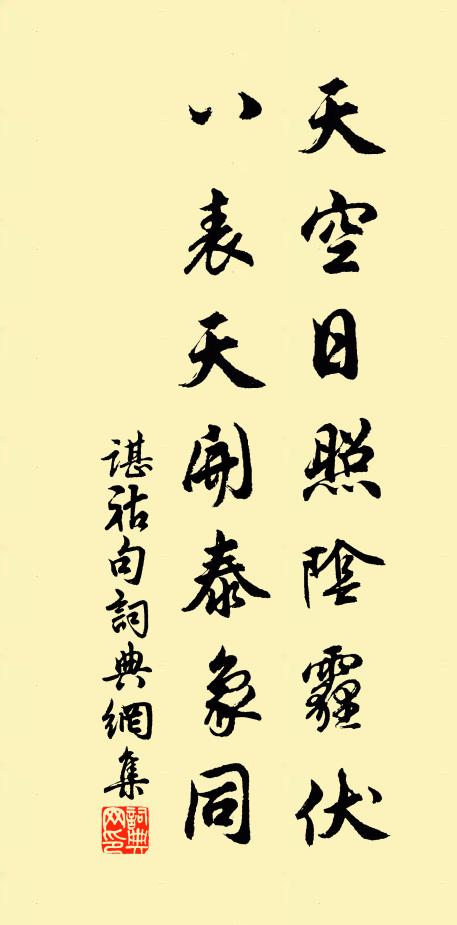 天空日照陰霾伏
八表天開泰象同
諶祜句詞典網集
詞典網印